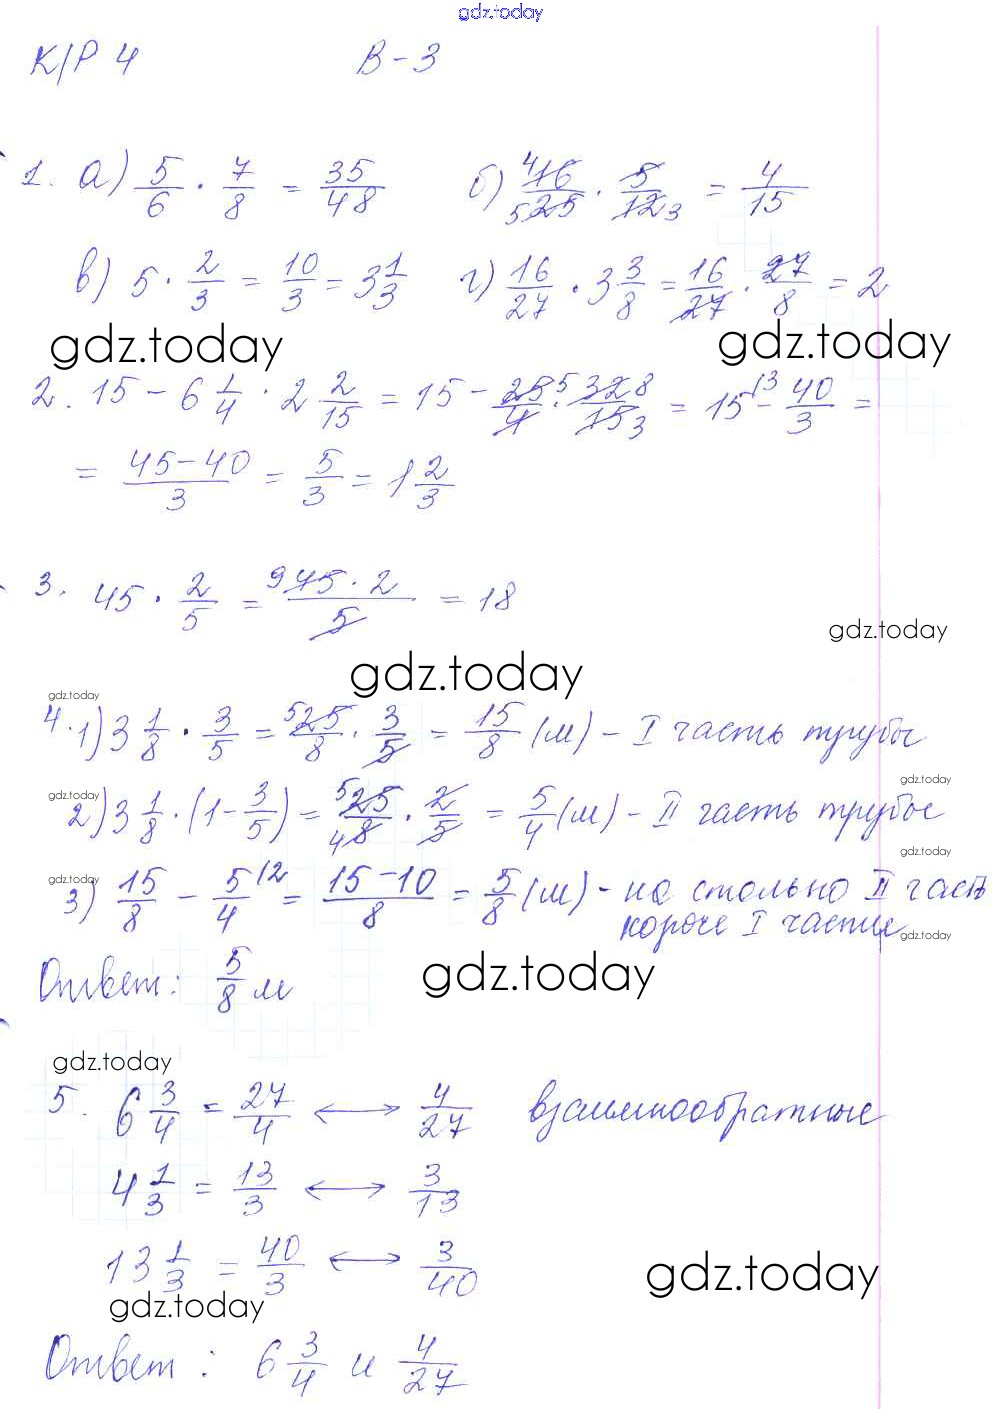 gdz.today
К/Р 4 В-3
1. а) 5/6 · 7/8 = 35/48 б) 4 16/5 25 · 5/12 3 = 4/15
в) 5 · 2/3 = 10/3 = 3 1/3 г) 16/27 · 3 3/8 = 16/27 · 27/8 = 2
gdz.today gdz.today
2. 15 - 6 1/4 · 2 2/15 = 15 - 25 5/4 · 32 8/15 3 = 15 \3 - 40/3 =
= 45-40/3 = 5/3 = 1 2/3
3. 45 · 2/5 = 9 45 · 2/5 = 18
gdz.today
gdz.today
gdz.today
4. 1) 3 1/8 · 3/5 = 5 25/8 · 3/5 = 15/8 (м) - I часть трубы
gdz.today
gdz.today
2) 3 1/8 · (1 - 3/5) = 5 25/4 8 · 2/5 = 5/4 (м) - II часть трубы
gdz.today
gdz.today
3) 15/8 - 5/4 \2 = 15-10/8 = 5/8 (м) - на столько II часть
короче I части
gdz.today
Ответ: 5/8 м
gdz.today
gdz.today
5. 6 3/4 = 27/4 ⟷ 4/27 взаимнообратные
4 1/3 = 13/3 ⟷ 3/13
13 1/3 = 40/3 ⟷ 3/40
gdz.today
gdz.today
Ответ: 6 3/4 и 4/27